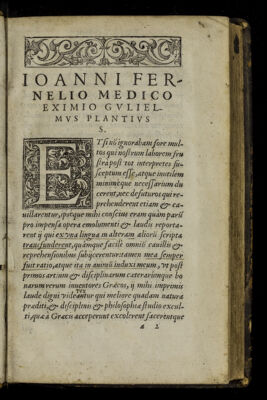 IOANNI FER-
NELIO MEDICO
EXIMIO GVLIEL-
MVS PLANTIVS
S.
ETsi nō ignorabam fore mul-
tos qui nostrum laborem fru
stra post tot interpretes su-
sceptum esse, atque inutilem
minimeque necessarium du
cerent, nec defuturos qui re-
prehenderent etiam & ca-
uillarentur, ipseque mihi conscius eram quàm parū
pro impensa opera emolumenti & laudis reporta-
rent ij qui ex vna lingua in alteram alioru̅ scripta
transfunderent, quámque facilè omniū cauillis &
reprehensionibus subijcerentur: tamen mea semper
fuit ratio, atque ita in animū induxi meum, vt post
primos artium & disciplinarum caeterarúmque bo
narum rerum inuentores Græcos, ij mihi imprimis
laude digni videantur qui meliore quadam natura
præditi, & disciplinis & philosophiæ studio excul-
ti, quæ à Græcis acceperunt excolerent facerentque
a 2